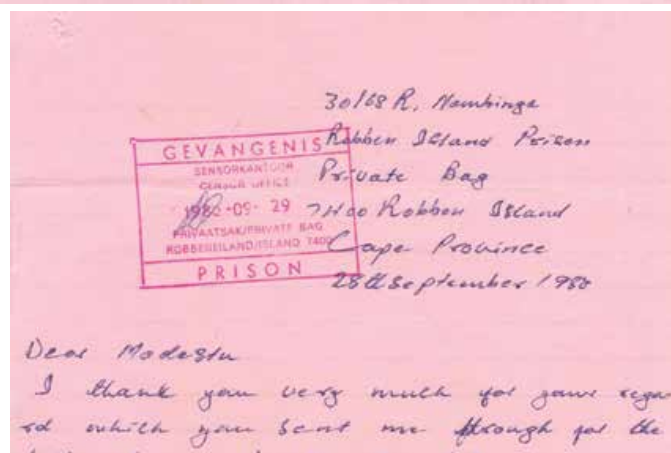 30/68 R. Nambinga
Robben Island Prison
Private Bag
7400 Robben Island
Cape Province
28th September 1980
GEVANGENIS
SENSORKANTOOR
CENSOR OFFICE
1980 -09- 29
PRIVAATSAK/PRIVATE BAG
ROBBENEILAND/ISLAND 7400
PRISON
Dear Modestu
I thank you very much for your rega
rd which you sent me through for the